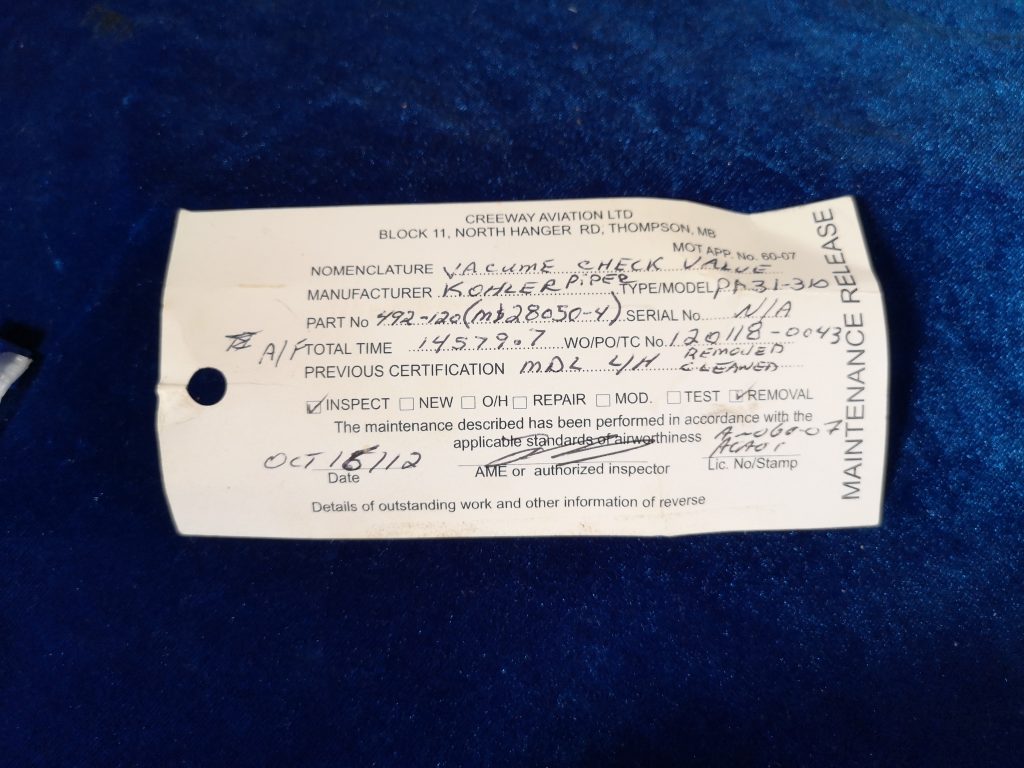 CREEWAY AVIATION LTD
BLOCK 11, NORTH HANGER RD, THOMPSON, MB
MOT APP. No. 60-07
NOMENCLATURE VACUME CHECK VALVE
MANUFACTURER KOHLER PIPER TYPE/MODEL PA31-310
PART No 492-120 (MS28050-4) SERIAL No. N/A
A/F TOTAL TIME 14579.7 WO/PO/TC No. 120118-0043
PREVIOUS CERTIFICATION MDL L/H REMOVED CLEANED
INSPECT NEW O/H REPAIR MOD. TEST REMOVAL
The maintenance described has been performed in accordance with the
applicable standards of airworthiness
OCT /12
Date AME or authorized inspector Lic. No/Stamp
Details of outstanding work and other information of reverse
MAINTENANCE RELEASE